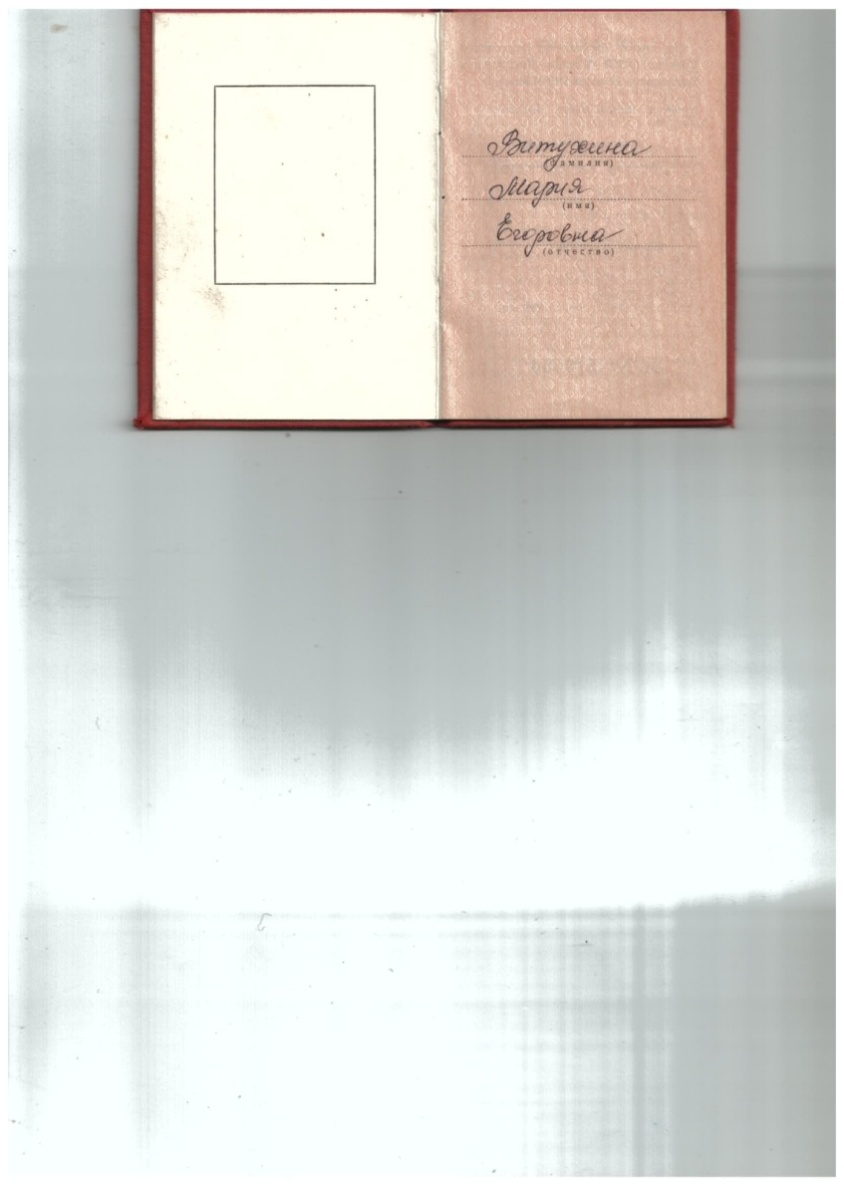 Витухина
(фамилия)
Мария
(имя)
Егоровна
(отчество)